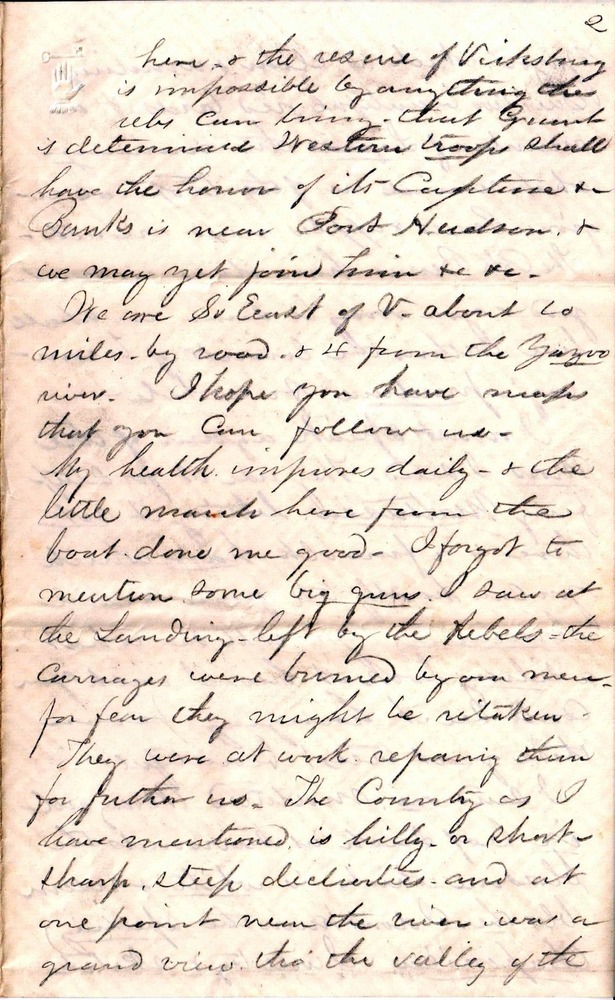 2
here, & the rescue of Vicksburg
is impossible by anything the
rebs can bring - that Grant
is determined Western troops shall
have the honor of its Capture &
Banks is near Port Hudson. &
we may yet join him &c &c -
We are So East of V - about 10
miles - by road. & 4 from the Yazoo
river - I hope you have maps
that you can follow us -
My health improves daily - & the
little march here from the
boat done me good - I forgot to
mention some big guns. I saw at
the Landing - left by the Rebels - the
Carriages were burned by our men -
for fear they might be retaken -
They were at work repairing them
for further us - The Country as I
have mentioned, is hilly - or short -
sharp, steep declivities - and at
one point near the river was a
grand view. tho' the valley of the